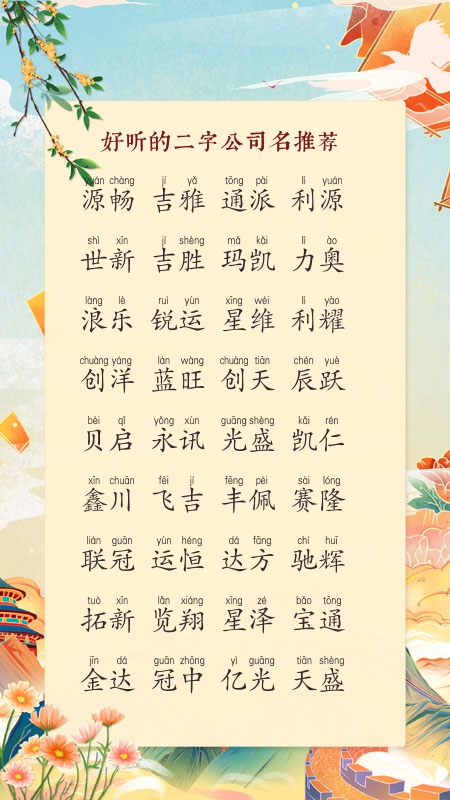 好听的二字公司名推荐
yuán chàng jí yǎ tōng pài lì yuán
源畅 吉雅 通派 利源
shì xīn jí shèng mǎ kǎi lì ào
世新 吉胜 玛凯 力奥
làng lè ruì yùn xīng wéi lì yào
浪乐 锐运 星维 利耀
chuàng yáng lán wàng chuàng tiān chén yuè
创洋 蓝旺 创天 辰跃
bèi qǐ yǒng xùn guāng shèng kǎi rén
贝启 永讯 光盛 凯仁
xīn chuān fēi jí fēng pèi sài lóng
鑫川 飞吉 丰佩 赛隆
lián guān yùn héng dá fāng chí huī
联冠 运恒 达方 驰辉
tuò xīn lǎn xiáng xīng zé bǎo tōng
拓新 览翔 星泽 宝通
jīn dá guān zhōng yì guāng tiān shèng
金达 冠中 亿光 天盛